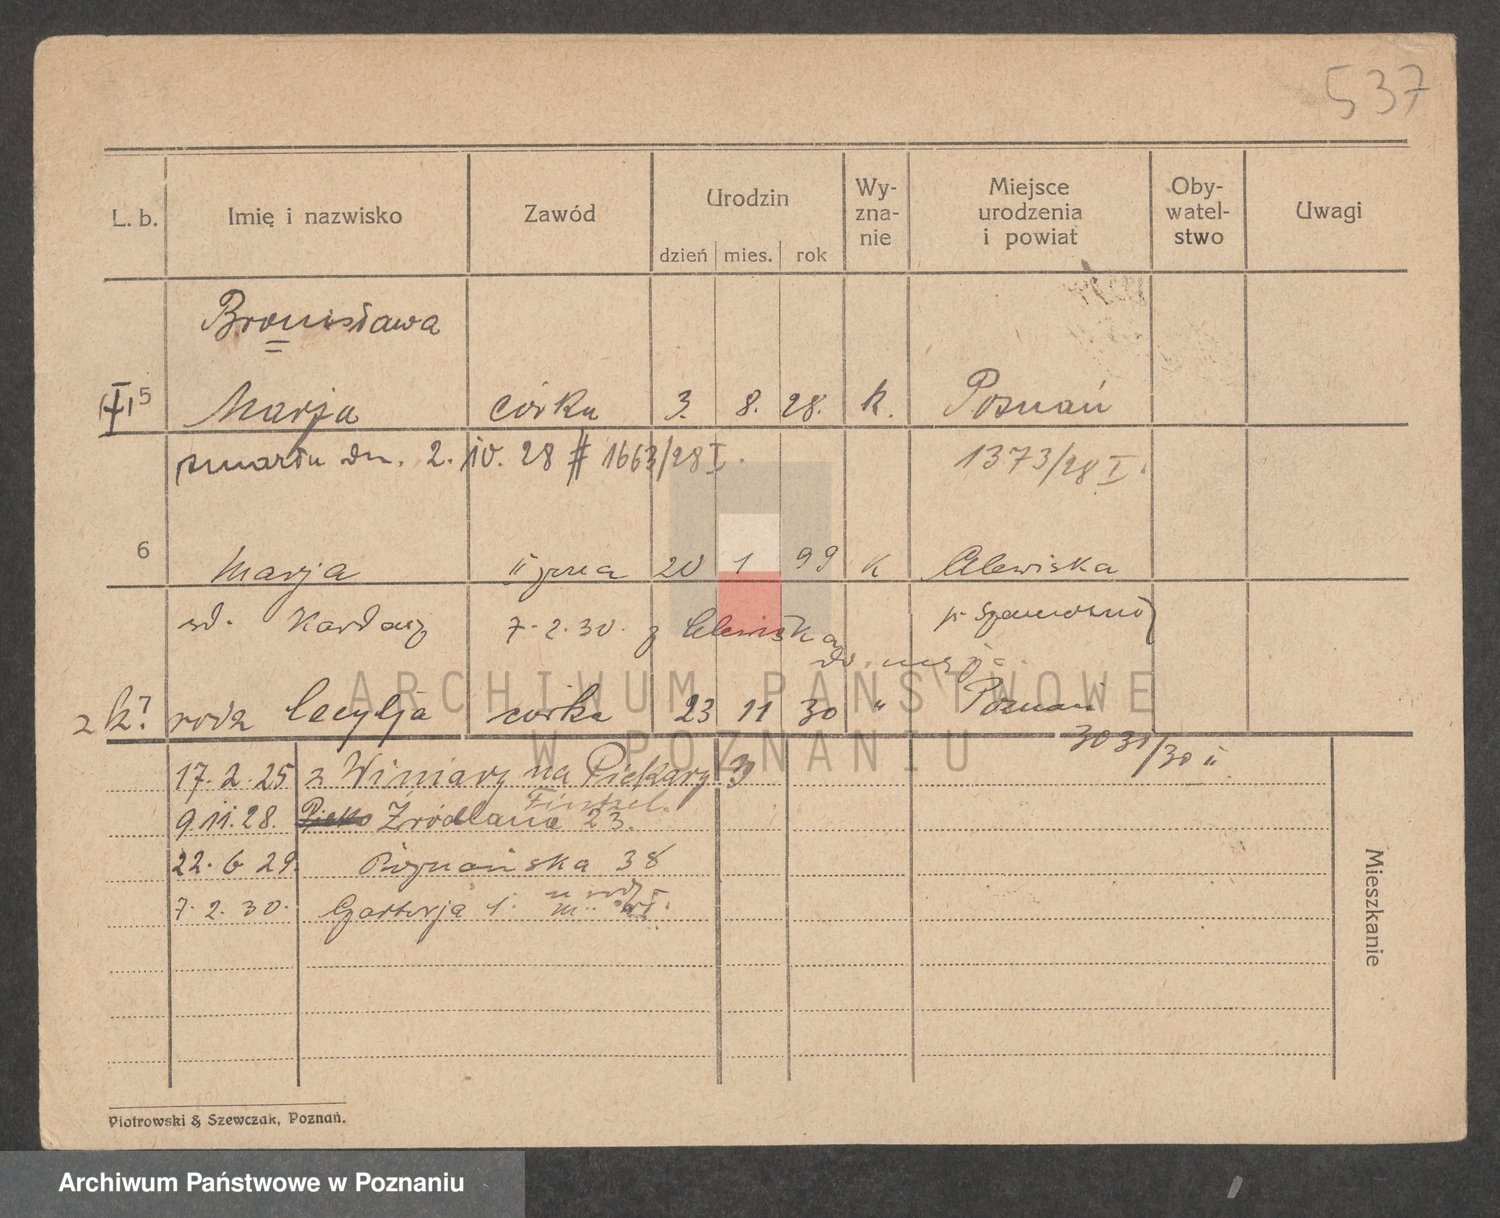 537
L. b. Imię i nazwisko Zawód Urodzin Wy- zna- nie Miejsce urodzenia i powiat Oby- watel- stwo Uwagi
dzień mies. rok
Bronisława
5 Marja córka 3. 8. 28. k. Poznań
zmarła dn. 2. 10. 28 # 1663/28 I. 1373/28 I.
6 Marja II żona 20 1 99 k Plewiska
7. 2. 30. z Plewiska
do męża
rodz Cecylja córka 23 11 30 " Poznań
3031/30 II
17. 2. 25 z Winiary na Piekary 3
9. 11. 28. Źródlana 23.
22. 6 29. Poznańska 38
7. 2. 30.
Mieszkanie
ARCHIWUM PAŃSTWOWE
W POZNANIU
Piotrowski & Szewczak, Poznań.
Archiwum Państwowe w Poznaniu